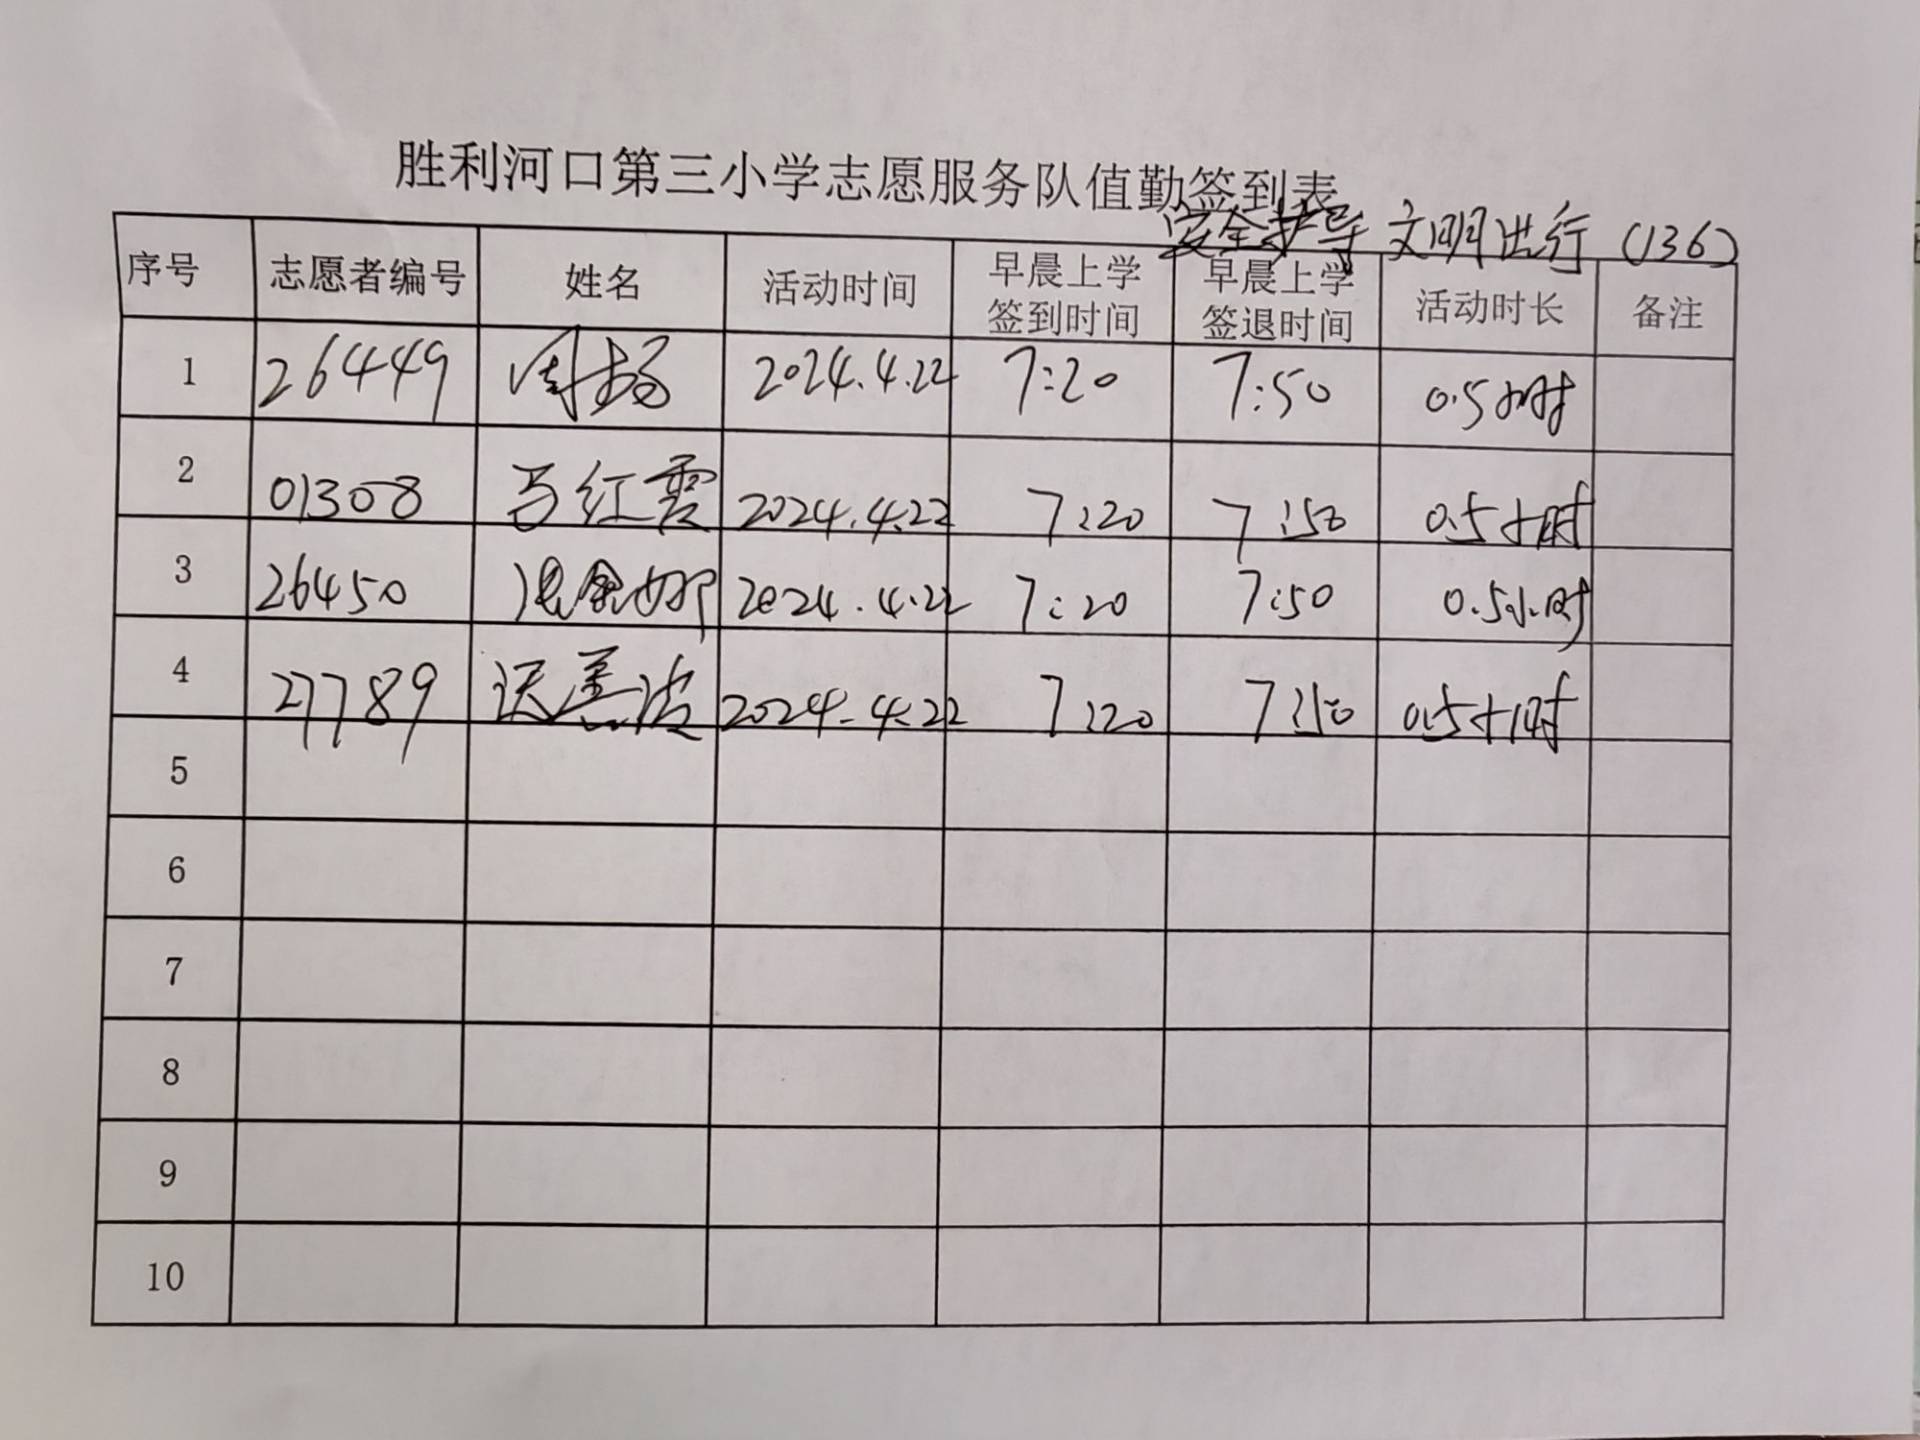 胜利河口第三小学志愿服务队值勤签到表
安全护导 文明出行 (136)
序号 志愿者编号 姓名 活动时间 早晨上学签到时间 早晨上学签退时间 活动时长 备注
1 26449 周扬 2024.4.22 7:20 7:50 0.5小时
2 01308 马红霞 2024.4.22 7:20 7:50 0.5小时
3 26450 2024.4.22 7:20 7:50 0.5小时
4 27789 2024.4.22 7:20 7:50 0.5小时
5
6
7
8
9
10